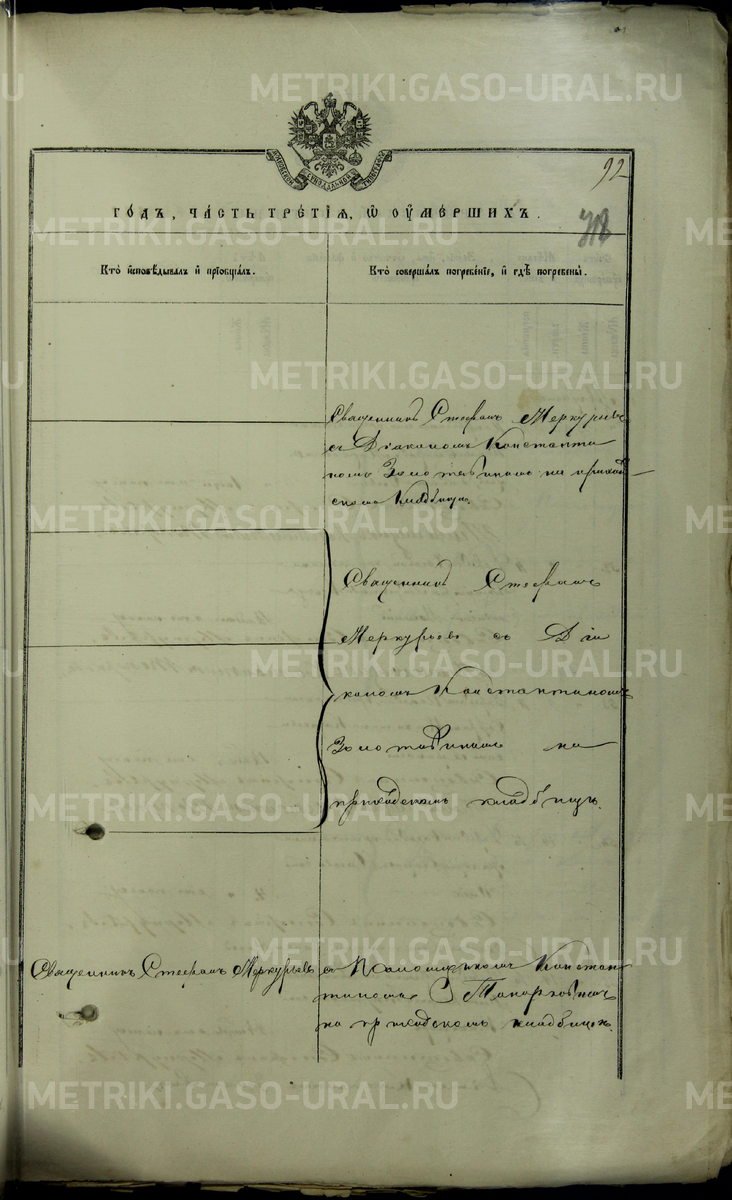 92
ГОДЪ, ЧАСТЬ ТРЕТІЯ, Ѡ ОУМЕРШИХЪ.
Кто исповѣдывалъ и пріобщалъ.
Кто совершалъ погребеніе, и гдѣ погребены.
Священникъ Стефанъ Меркурьевъ
съ Діакономъ Константи
номъ на приход
скомъ кладбищѣ.
Священникъ Стефанъ
Меркурьевъ съ Діа
кономъ Константиномъ
на
приходскомъ кладбищѣ.
Священникъ Стефанъ Меркурьевъ
съ Константи
номъ
на приходскомъ кладбищѣ.
METRIKI.GASO-URAL.RU